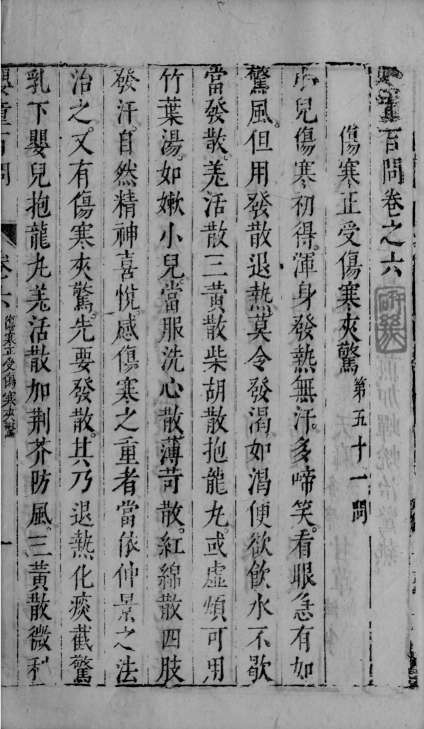 嬰童百問卷之六
傷寒正受傷寒夾驚 第五十一問
小兒傷寒初得渾身發熱無汗多啼笑看眼急有如
驚風但用發散退熱莫令發渴如渴便欲飲水不歇
當發散羗活散三黃散柴胡散抱龍丸或虛煩可用
竹葉湯如嗽小兒當服洗心散薄苛散紅綿散四肢
發汗自然精神喜悅感傷寒之重者當依仲景之法
治之又有傷寒夾驚先要發散其乃退熱化痰截驚
乳下嬰兒抱龍丸羗活散加荆芥防風三黃散微利
嬰童百問 卷六 傷寒正受傷寒夾驚 一